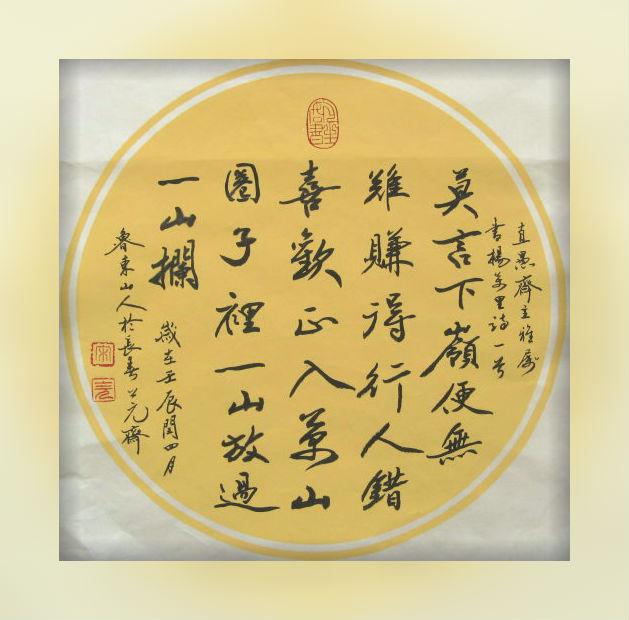 直愚齋主雅屬
書楊萬里詩一首
莫言下嶺便無
難賺得行人錯
喜歡正入萬山
圈子裡一山放過
一山攔
歲在壬辰閏四月
魯東山人於長春公元齋